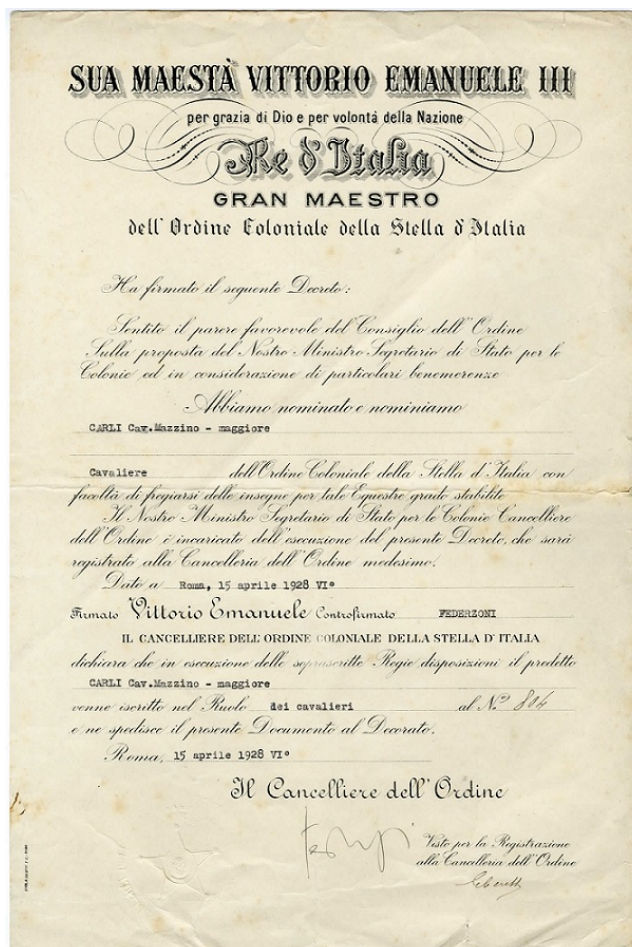 SUA MAESTÀ VITTORIO EMANUELE III
per grazia di Dio e per volontà della Nazione
Re d'Italia
GRAN MAESTRO
dell' Ordine Coloniale della Stella d'Italia
Ha firmato il seguente Decreto:
Sentito il parere favorevole del Consiglio dell' Ordine
Sulla proposta del Nostro Ministro Segretario di Stato per le
Colonie ed in considerazione di particolari benemerenze
Abbiamo nominato e nominiamo
CARLI Cav.Mazzino - maggiore
Cavaliere dell'Ordine Coloniale della Stella d'Italia con
facoltà di fregiarsi delle insegne per tale Equestre grado stabilite
Il Nostro Ministro Segretario di Stato per le Colonie Cancelliere
dell'Ordine è incaricato dell'esecuzione del presente Decreto, che sarà
registrato alla Cancelleria dell'Ordine medesimo.
Dato a Roma, 15 aprile 1928 VI°
Firmato Vittorio Emanuele Controfirmato FEDERZONI
IL CANCELLIERE DELL'ORDINE COLONIALE DELLA STELLA D'ITALIA
dichiara che in esecuzione delle soprascritte Regie disposizioni il predetto
CARLI Cav.Mazzino - maggiore
venne iscritto nel Ruolo dei cavalieri al N.° 804
e ne spedisce il presente Documento al Decorato.
Roma, 15 aprile 1928 VI°
Il Cancelliere dell'Ordine
Visto per la Registrazione
alla Cancelleria dell'Ordine